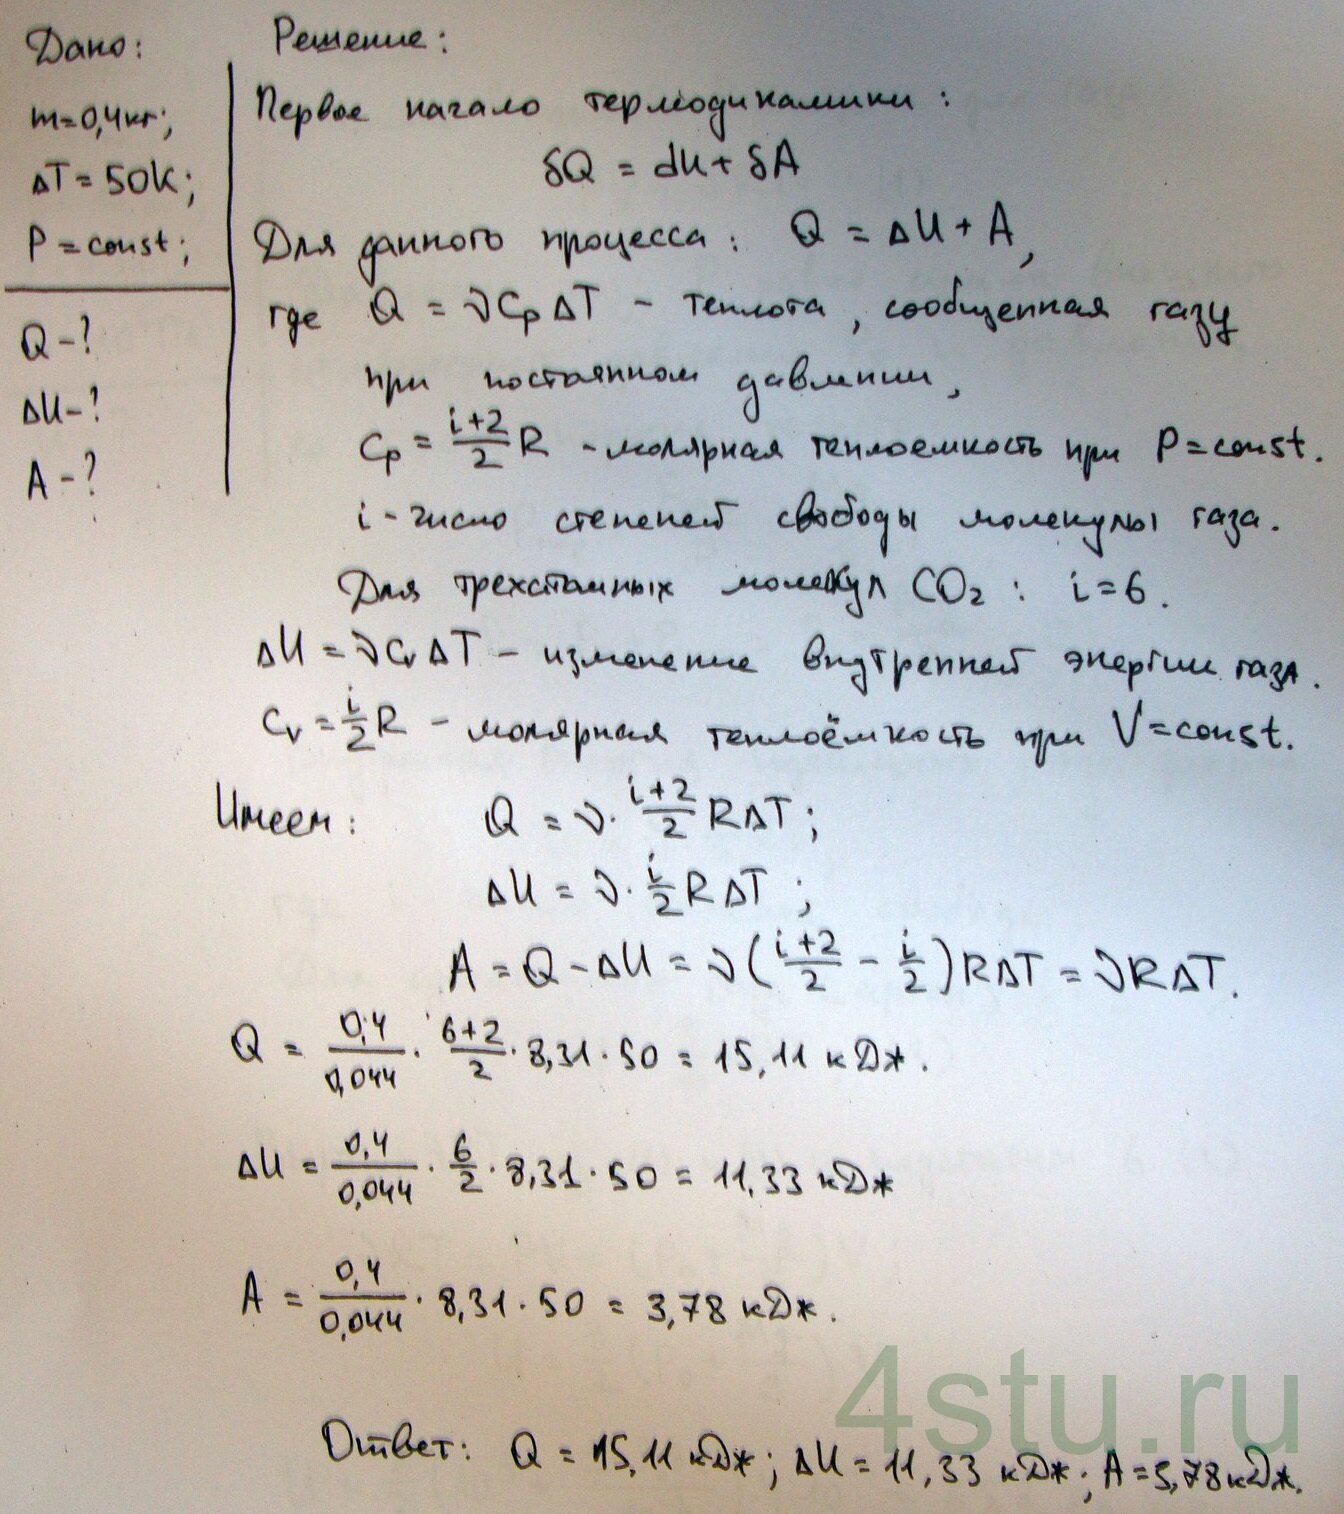 Дано:
m=0,4кг;
ΔT=50K;
P=const;
Q-?
ΔU-?
A-?
Решение:
Первое начало термодинамики:
δQ = dU + δA
Для данного процесса: Q = ΔU + A,
где Q = νCpΔT - теплота, сообщенная газу
при постоянном давлении,
Cp = (i+2)/2 R - молярная теплоемкость при P=const.
i - число степеней свободы молекулы газа.
Для трехатомных молекул CO₂: i=6.
ΔU = νCvΔT - изменение внутренней энергии газа.
Cv = i/2 R - молярная теплоёмкость при V=const.
Имеем: Q = ν · (i+2)/2 RΔT;
ΔU = ν · i/2 RΔT;
A = Q - ΔU = ν((i+2)/2 - i/2)RΔT = νRΔT.
Q = 0,4/0,044 · (6+2)/2 · 8,31 · 50 = 15,11 кДж.
ΔU = 0,4/0,044 · 6/2 · 8,31 · 50 = 11,33 кДж
A = 0,4/0,044 · 8,31 · 50 = 3,78 кДж.
Ответ: Q = 15,11 кДж; ΔU = 11,33 кДж; A = 3,78 кДж.
4stu.ru